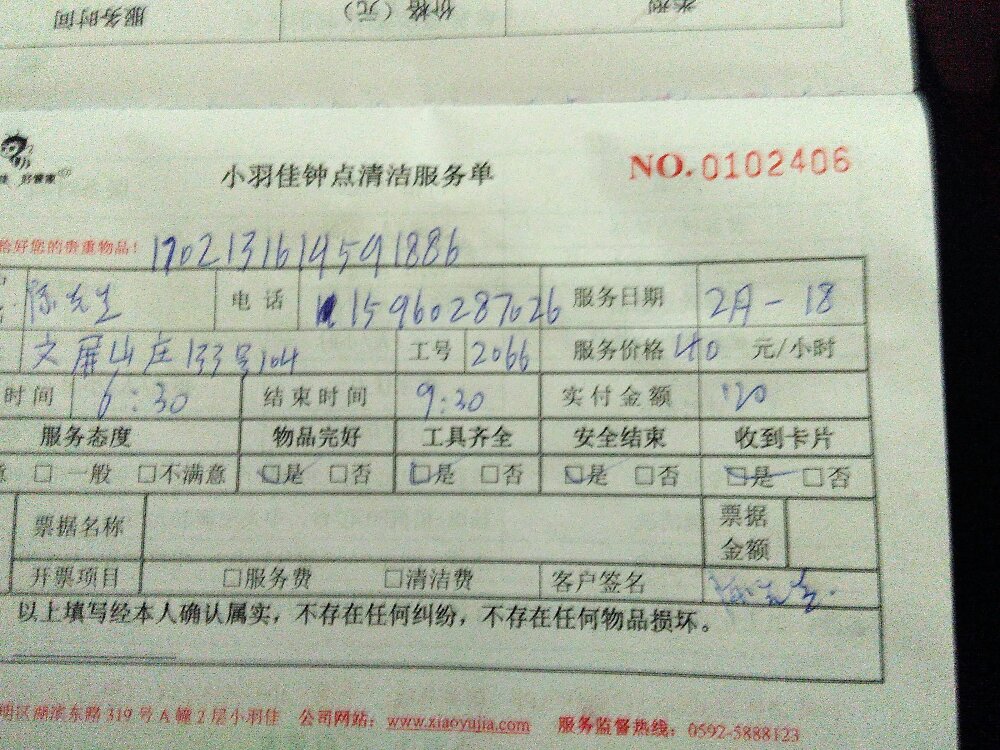 类型 价格（元） 服务时间
小羽佳钟点清洁服务单 NO.0102406
好管家
恰好您的贵重物品！ 170213161459188 6
陈先生 电话 15960287026 服务日期 2月-18
文屏山庄133号104 工号 2066 服务价格 40 元/小时
时间 6:30 结束时间 9:30 实付金额 120
服务态度 物品完好 工具齐全 安全结束 收到卡片
意 □ 一般 □不满意 □是 □否 □是 □否 □是 □否 □是 □否
票据名称 票据金额
开票项目 □服务费 □清洁费 客户签名 陈先生
以上填写经本人确认属实，不存在任何纠纷，不存在任何物品损坏。
明区湖滨东路319号A幢2层小羽佳 公司网站：www.xiaoyujia.com 服务监督热线：0592-5888123